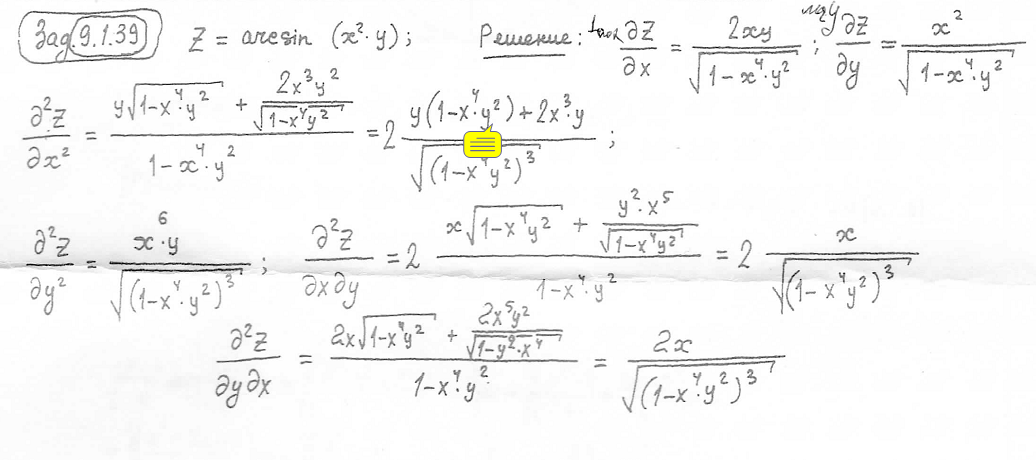 Зад 9.1.39 Z = arcsin (x²·y); Решение: ∂Z/∂x = 2xy/√(1-x⁴·y²); ∂Z/∂y = x²/√(1-x⁴·y²)
∂²Z/∂x² = (y√(1-x⁴y²) + 2x³y²/√(1-x⁴y²))/(1-x⁴·y²) = 2 (y(1-x⁴y²)+2x³·y)/√((1-x⁴y²)³);
∂²Z/∂y² = x⁶·y/√((1-x⁴·y²)³); ∂²Z/∂x∂y = 2 (x√(1-x⁴y²) + y²·x⁵/√(1-x⁴y²))/(1-x⁴·y²) = 2 x/√((1-x⁴y²)³)
∂²Z/∂y∂x = (2x√(1-x⁴y²) + 2x⁵y²/√(1-y²·x⁴))/(1-x⁴·y²) = 2x/√((1-x⁴·y²)³)